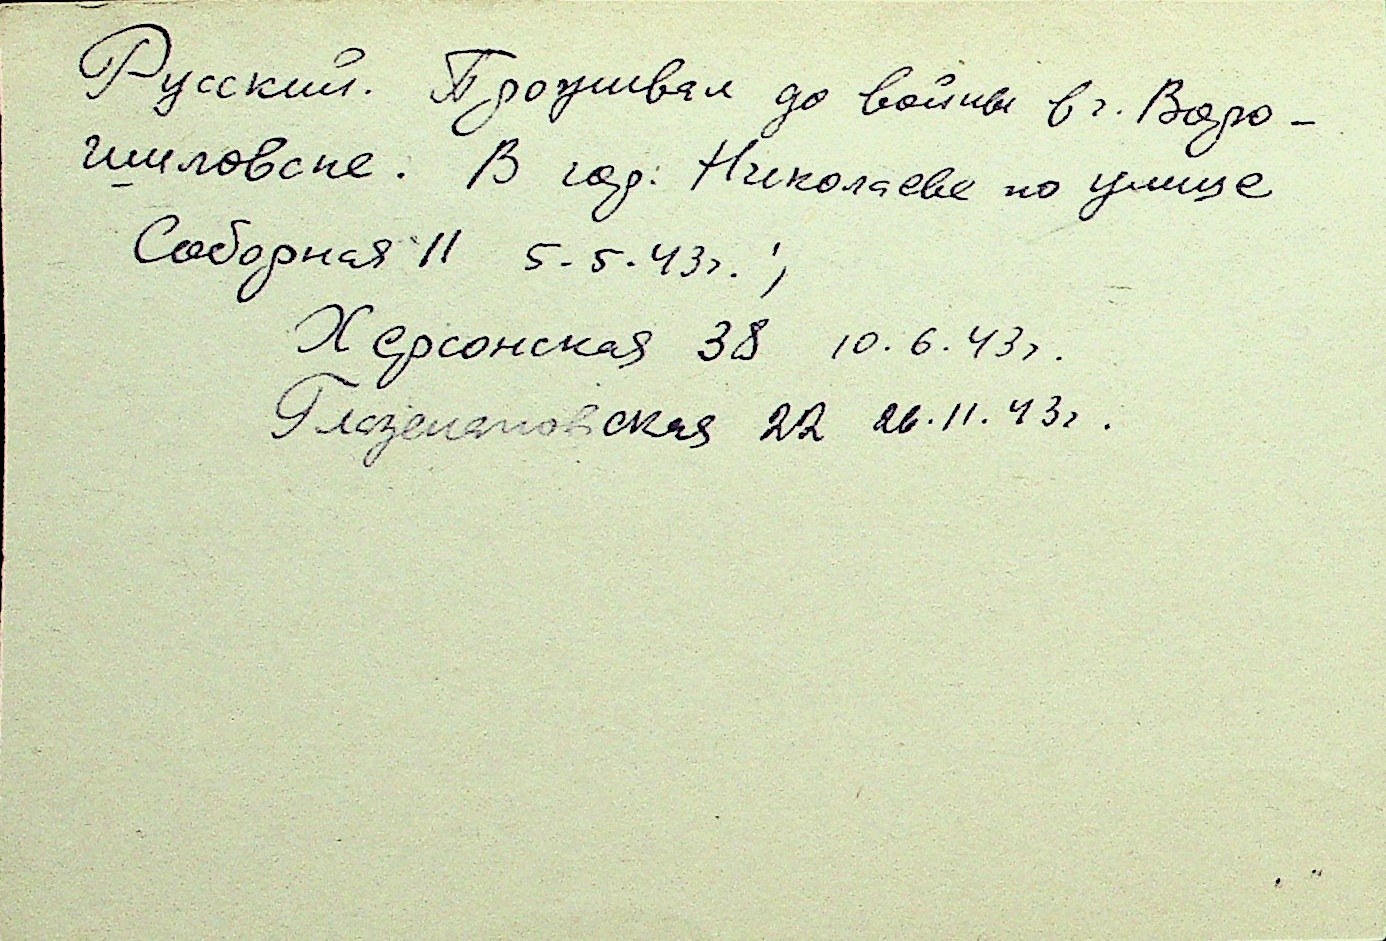 Русский. Проживал до войны в г. Воро-
шиловске. В гор. Николаеве по улице
Соборная 11 5.5.43г.;
Херсонская 38 10.6.43г.
Глазенаповская 22 26.11.43г.